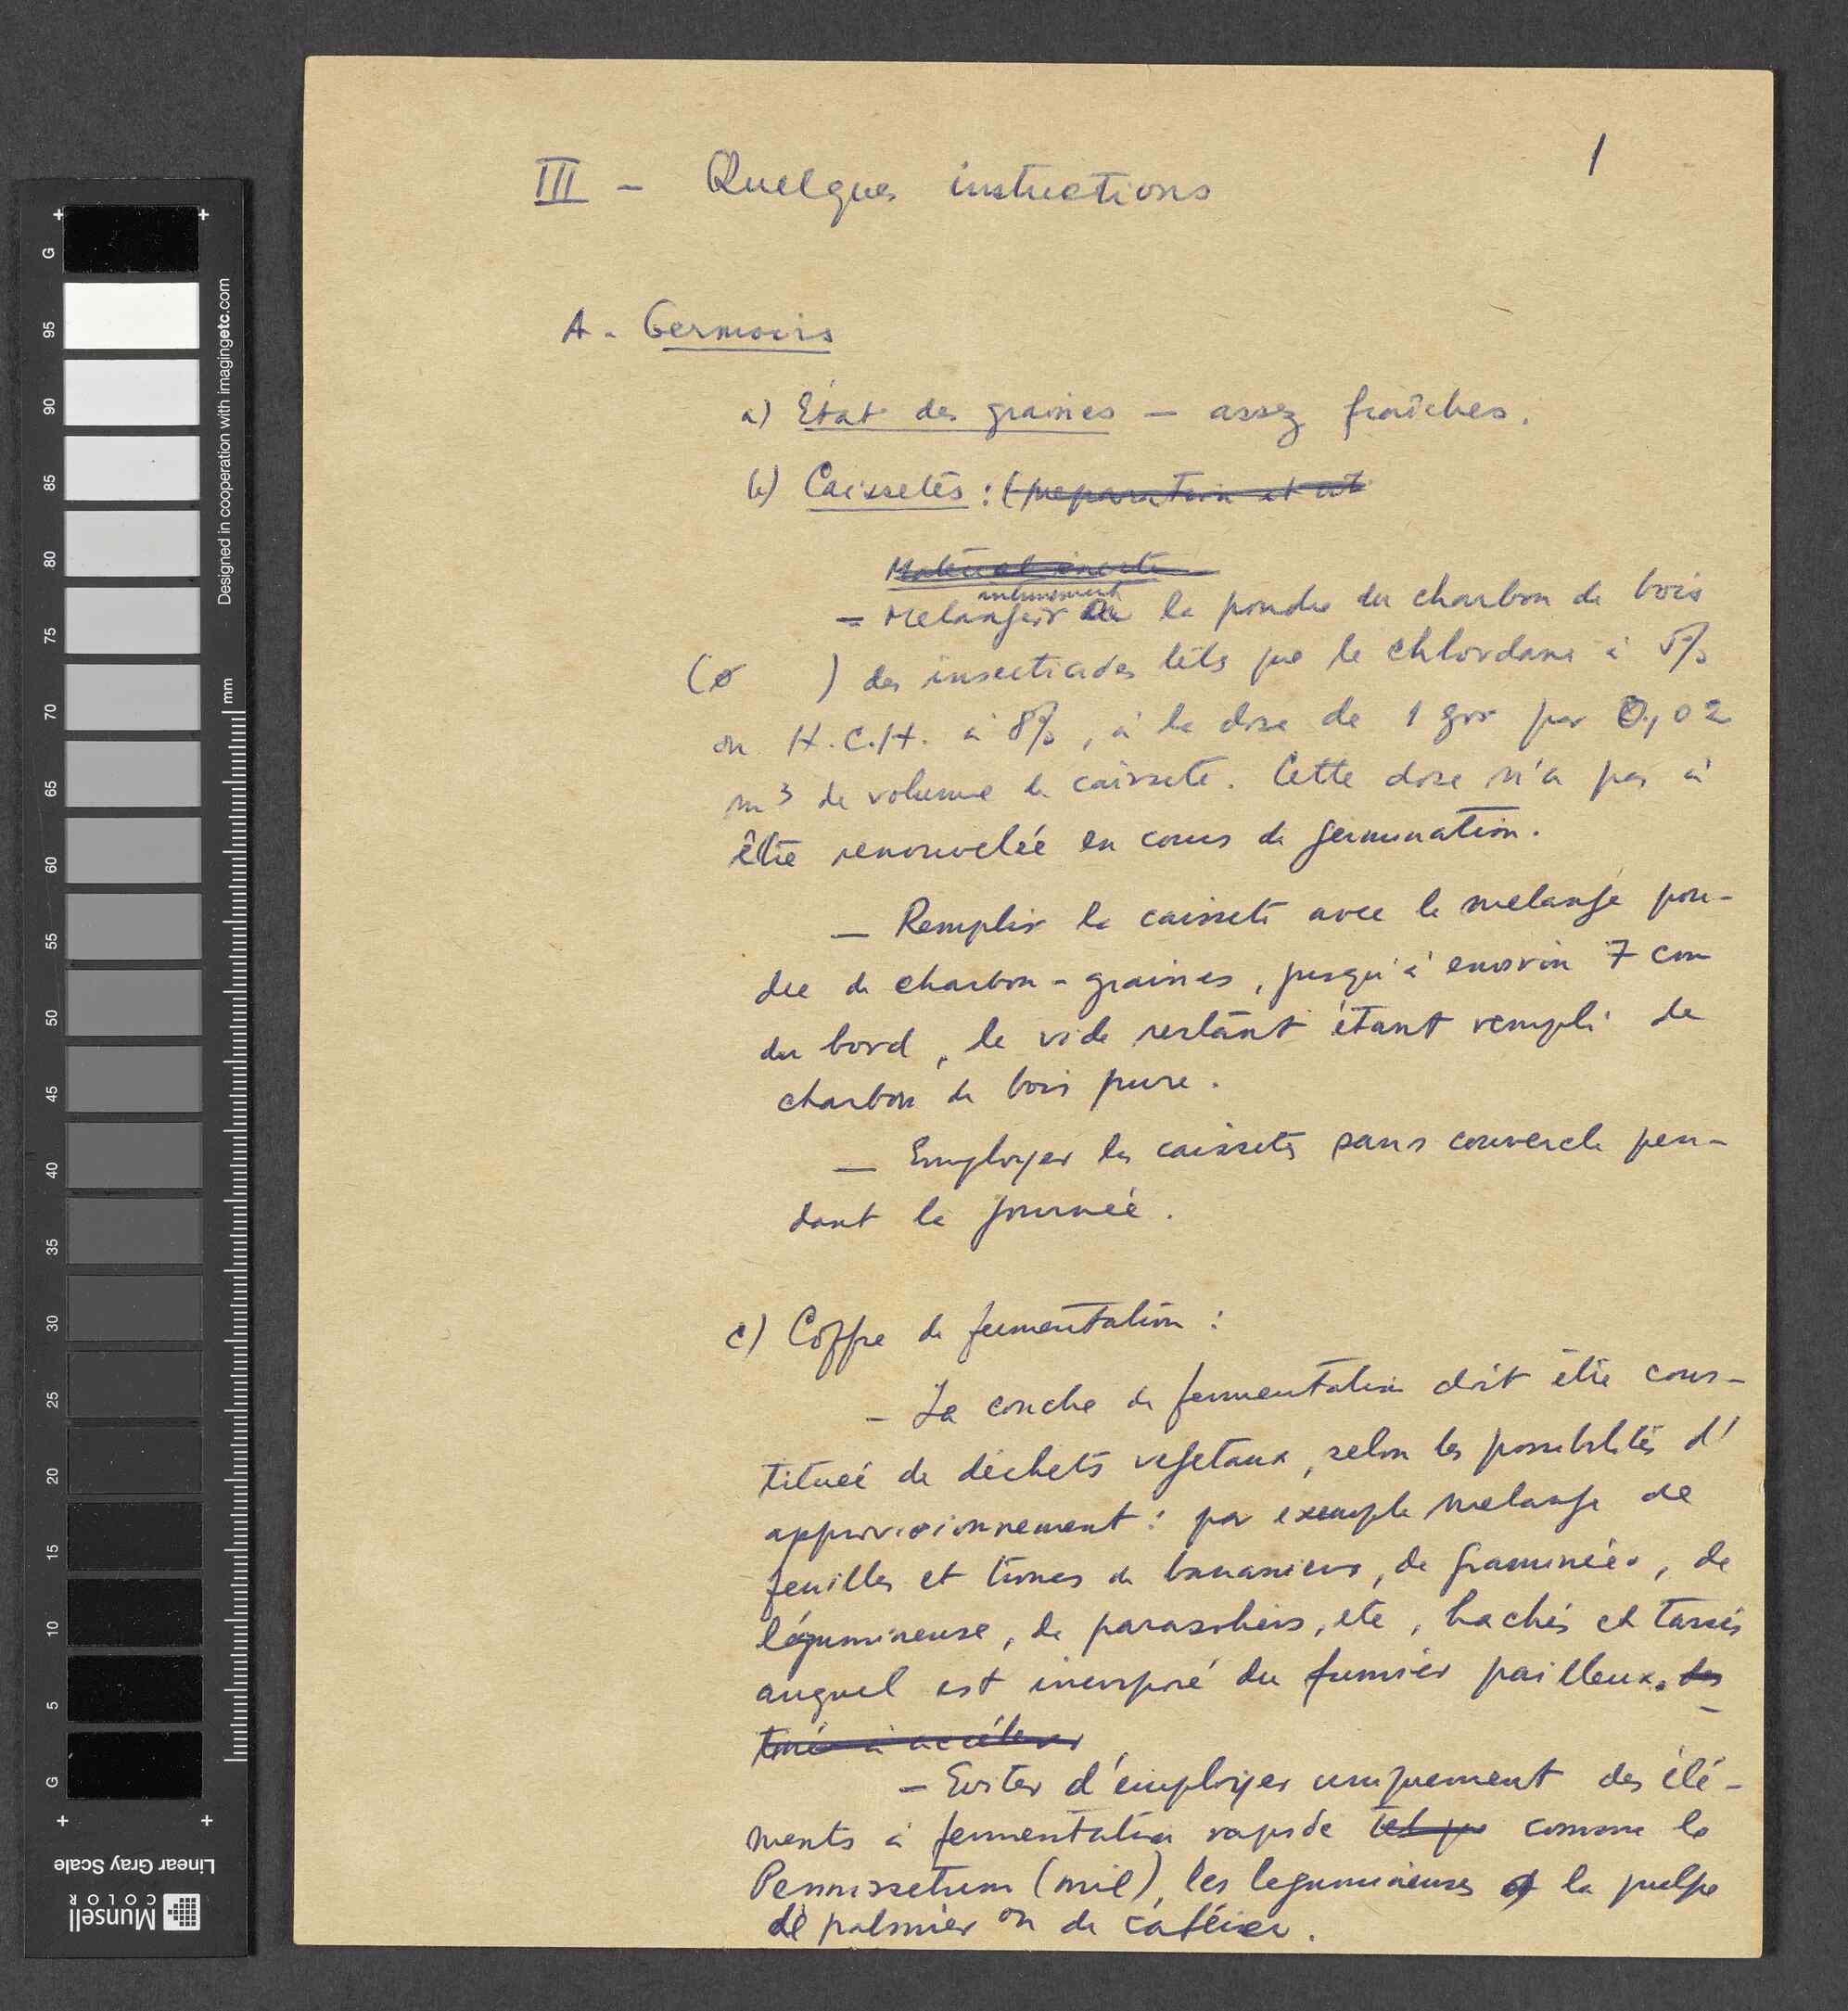 1
III - Quelques instructions
A - Germoirs
a) Etat des graines - assez fraîches.
b) Caissetes : (preparation et
Materiel inerte
intimement
= Melanger la poudre du charbon de bois
(ø ) des insecticides tels que le chlordane à 5%
ou H.C.H. à 8%, à la dose de 1 grr par 0,02
m3 de volume de caissete. Cette dose n'a pas à
être renouvelée en cours de germination.
— Remplir la caissete avec le melange pou-
dre de charbon - graines, jusqu'à environ 7 cm
du bord, le vide restant étant rempli de
charbon de bois pure.
— Employer les caissetes sans couvercle pen-
dant la journée.
c) Coffre de fermentation :
- La couche de fermentation doit être cons-
tituée de déchets vegetaux, selon les possibilités d'
approvisionnement : par exemple melange de
feuilles et troncs de bananiers, de graminées, de
légumineuse, de parasoliers, etc, hachés et tassés
auquel est incorporé du fumier pailleux. des
tiné à accélerer
- Eviter d'employer uniquement des élé-
ments à fermentation rapide tel que comme le
Pennissetum (mil), les legumineuses et la pulpe
de palmier ou de caféier.
G
95
90
85
80
75
70
65
60
55
50
45
40
35
30
25
20
15
10
5
G
mm
Designed in cooperation with imagingetc.com
Linear Gray Scale
Munsell
COLOR